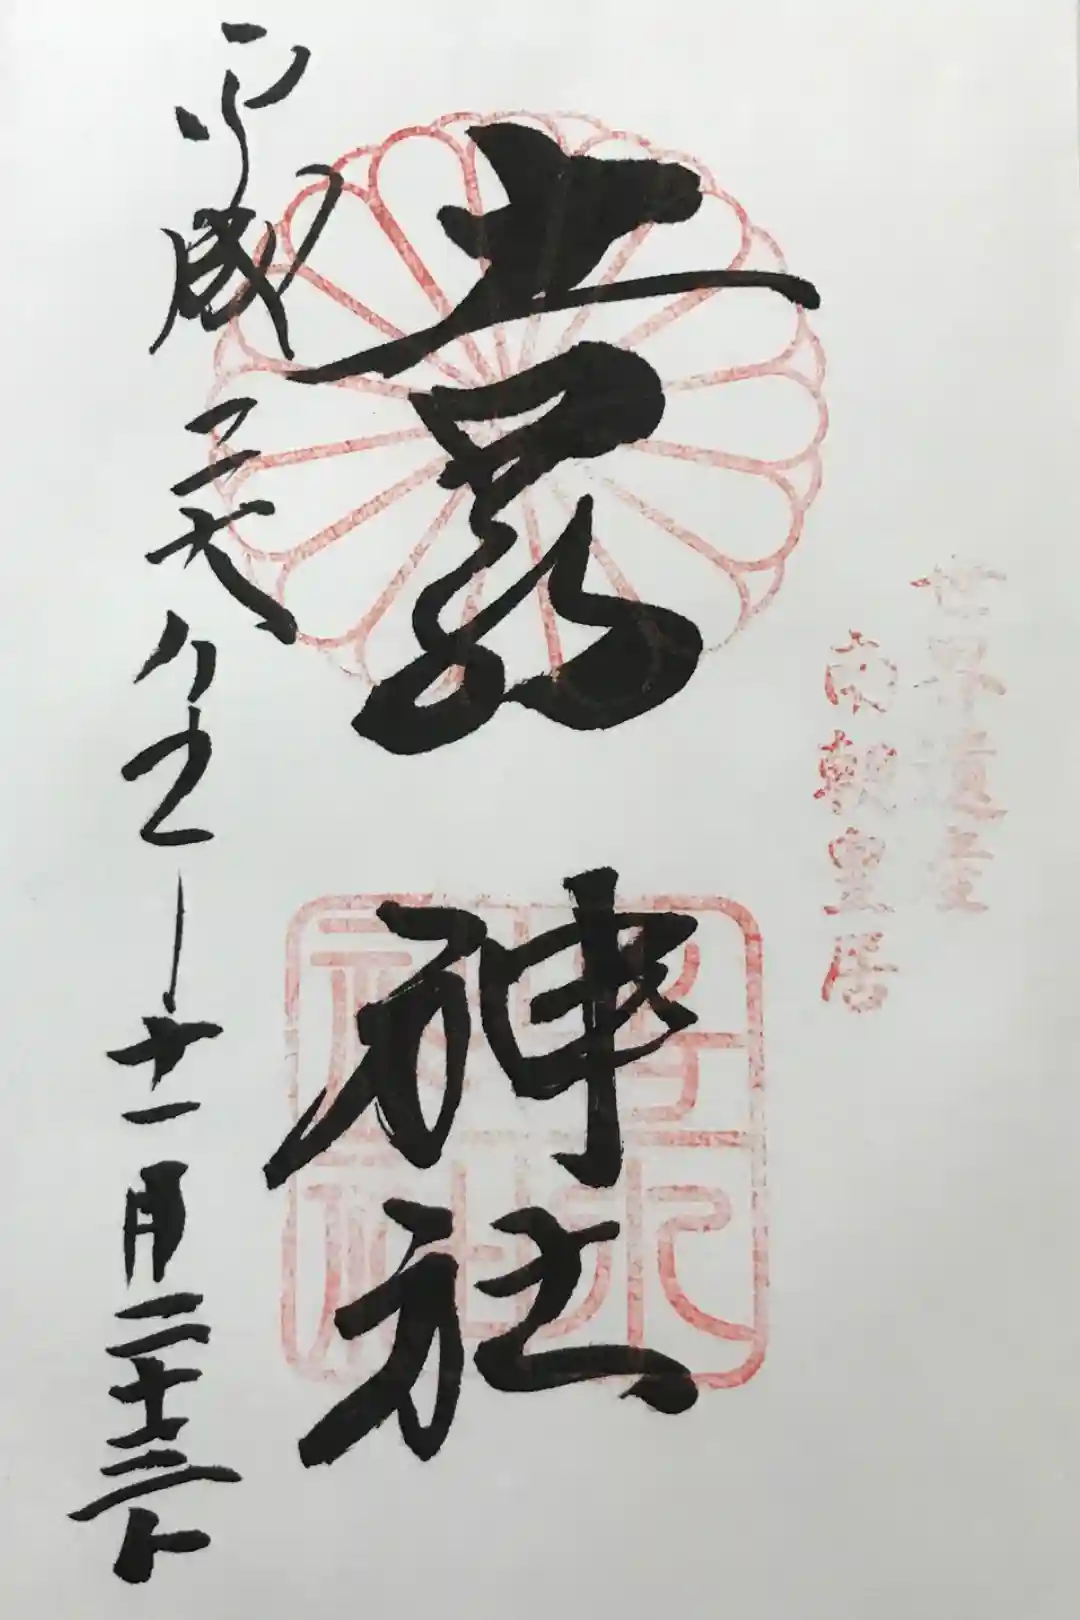 世界遺産
南朝皇居
吉水神社
吉水神社
平成二十八年十一月二十三日